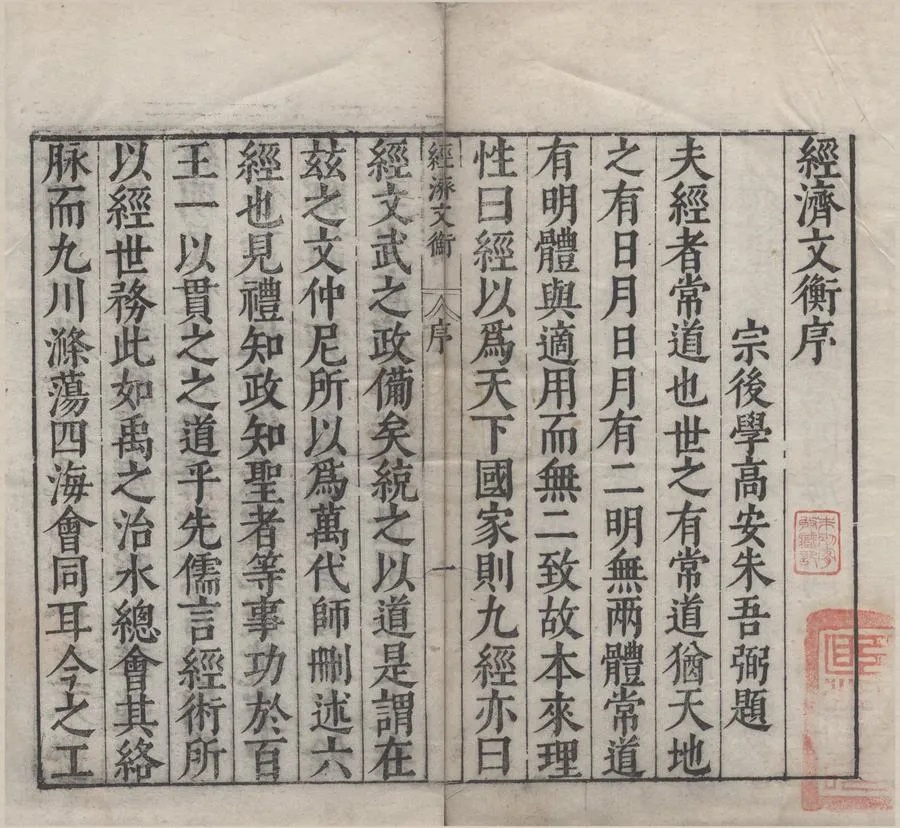 經濟文衡序
宗後學高安朱吾弼題
夫經者常道也世之有常道猶天地
之有日月日月有二明無兩體常道
有明體與適用而無二致故本來理
性曰經以爲天下國家則九經亦曰
經濟文衡 序 一
經文武之政備矣統之以道是謂在
茲之文仲尼所以爲萬代師刪述六
經也見禮知政知聖者等事功於百
王一以貫之之道乎先儒言經術所
以經世務此如禹之治水總會其絡
脉而九川滌蕩四海會同耳今之工